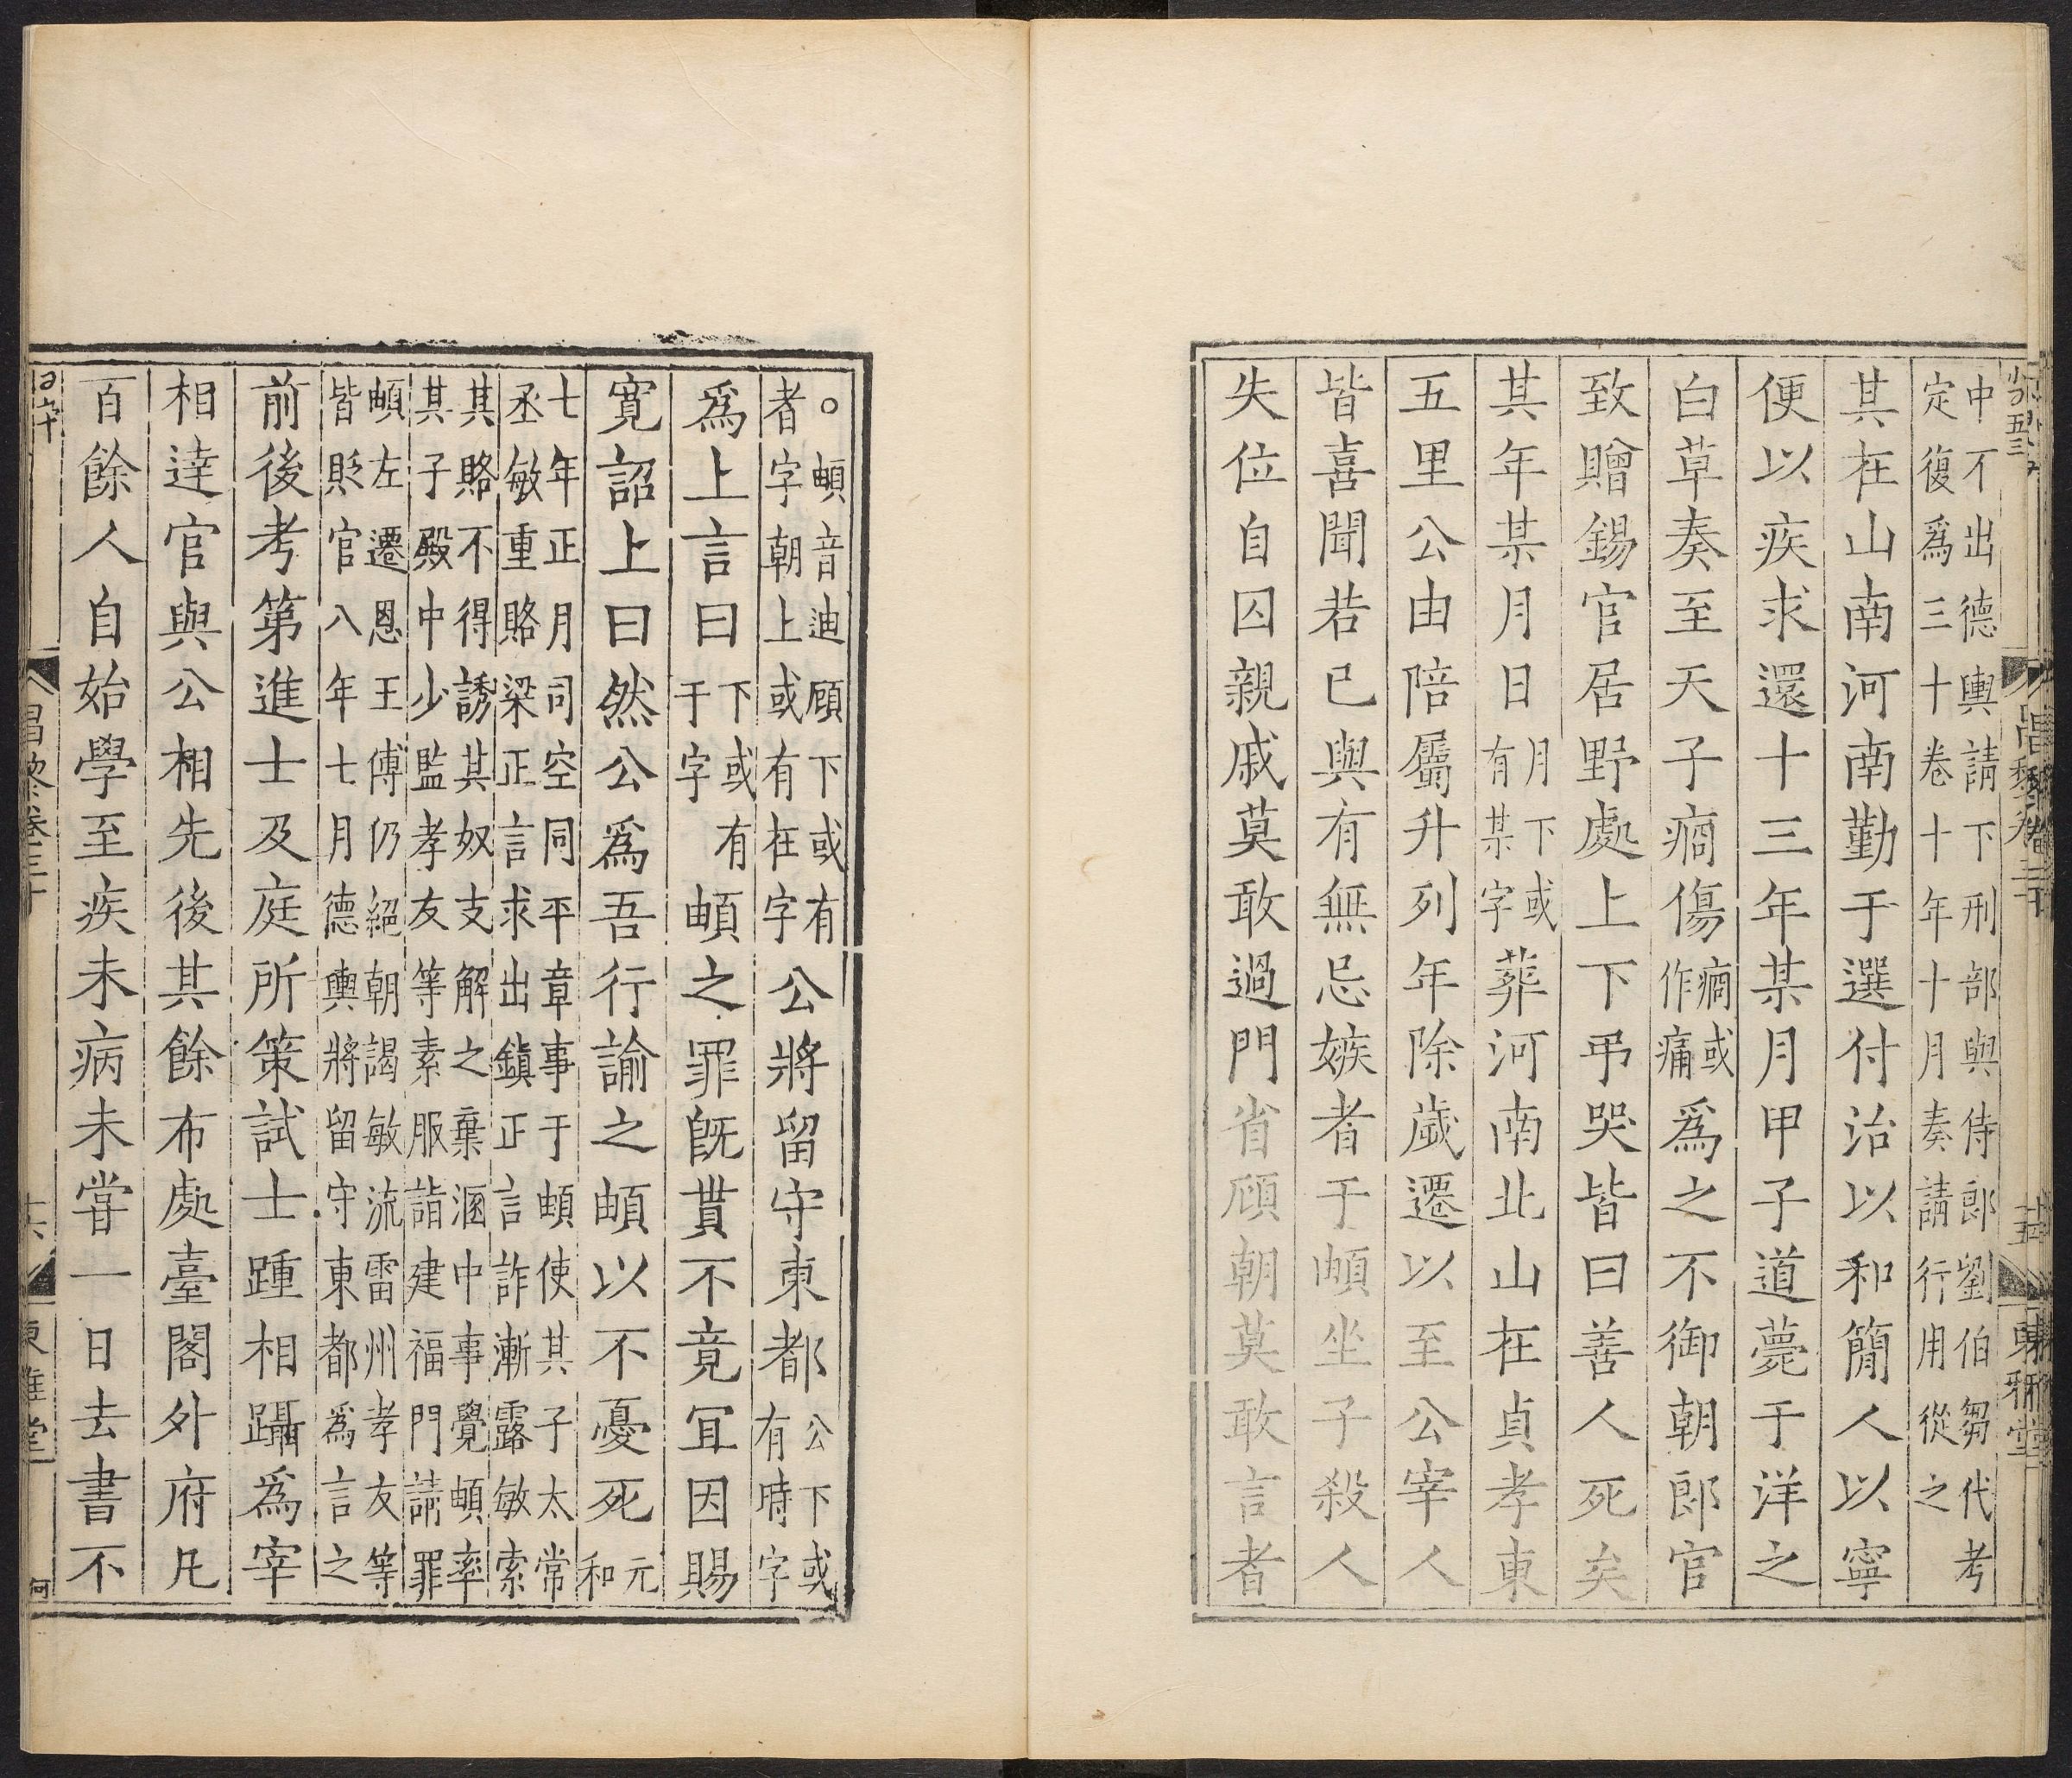 中不出德輿請下刑部與侍郎劉伯芻代考
定復爲三十卷十年十月奏請行用從之
其在山南河南勤于選付治以和簡人以寧
便以疾求還十三年某月甲子道薨于洋之
白草奏至天子痌傷痌或作痛爲之不御朝郎官
致贈錫官居野處上下弔哭皆曰善人死矣
其年某月日月下或有某字葬河南北山在貞孝東
五里公由陪屬升列年除歲遷以至公宰人
皆喜聞若已與有無忌嫉者于頔坐子殺人
失位自囚親戚莫敢過門省顧朝莫敢言者
。頔音迪顧下或有
者字朝上或有在字公將留守東都公下或有時字
爲上言曰下或有于字頔之罪旣貰不竟宜因賜
寬詔上曰然公爲吾行諭之頔以不憂死元和
七年正月司空同平章事于頔使其子太常
丞敏重賂梁正言求出鎭正言詐漸露敏索
其賂不得誘其奴支解之棄溷中事覺頔率
其子殿中少監孝友等素服詣建福門請罪
頔左遷恩王傅仍絕朝謁敏流雷州孝友等
皆貶官八年七月德輿將留守東都爲言之
前後考第進士及庭所策試士踵相躡爲宰
相達官與公相先後其餘布處臺閣外府凡
百餘人自始學至疾未病未嘗一日去書不
昌黎卷三十
東雅堂